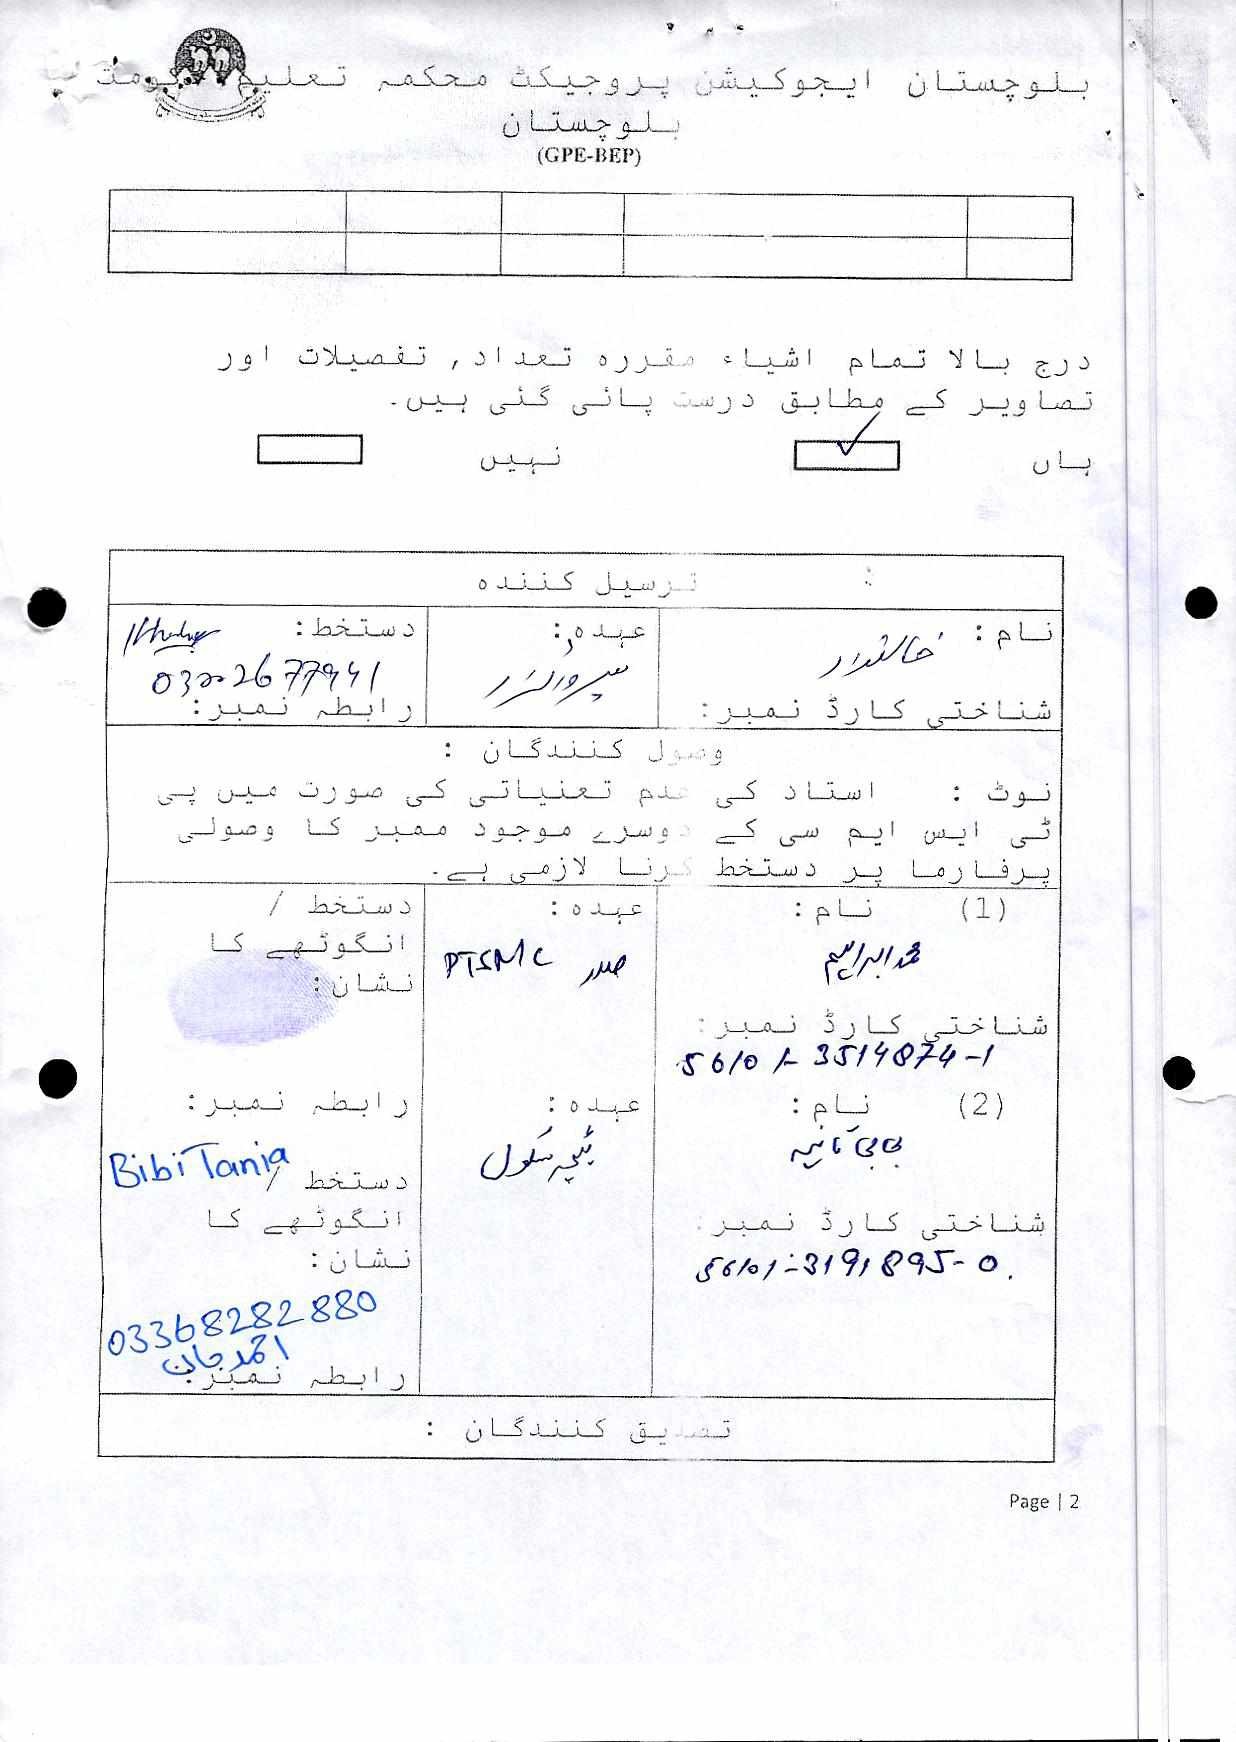 بلوچستان ایجوکیشن پروجیکٹ محکمہ تعلیم حکومت
بلوچستان
(GPE-BEP)
درج بالا تمام اشیاء مقررہ تعداد, تفصیلات اور
تصاویر کے مطابق درست پائی گئی ہیں۔
ہاں نہیں
ترسیل کنندہ :
نام : عہدہ: دستخط:
سپروائزر
شناختی کارڈ نمبر: رابطہ نمبر:
وصول کنندگان :
نوٹ : استاد کی عدم تعنیاتی کی صورت میں پی
ٹی ایس ایم سی کے دوسرے موجود ممبر کا وصولی
پرفارما پر دستخط کرنا لازمی ہے۔
(1) نام : عہدہ : دستخط /
انگوٹھے کا
نشان:
محمد ابراہیم صدر PTSMC
شناختی کارڈ نمبر:
56101-3514874-1
(2) نام : عہدہ : رابطہ نمبر:
بی بی تانیہ ٹیچر سکول Bibi Tania
دستخط /
انگوٹھے کا
شناختی کارڈ نمبر:
نشان:
56101-3191895-0
03368282880
احمد جان
رابطہ نمبر:
تصدیق کنندگان :
Page | 2